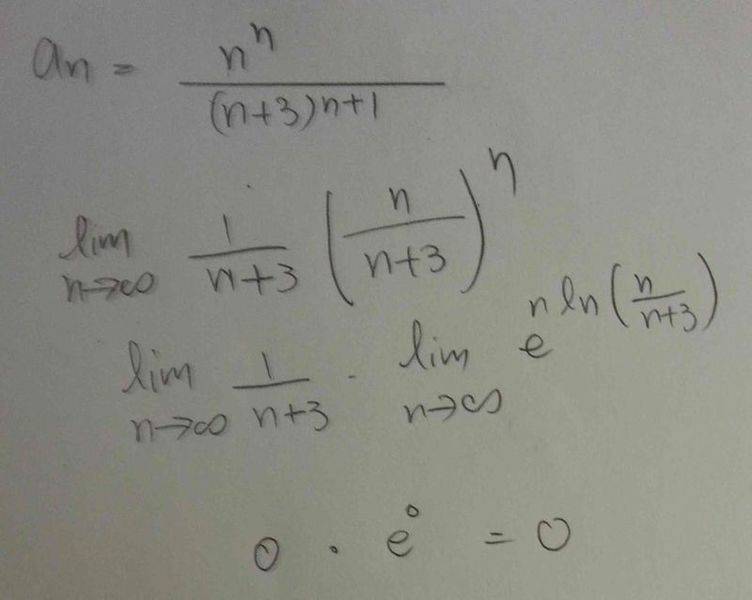 an = n^n / (n+3)^{n+1}
lim n→∞ 1/(n+3) (n/(n+3))^n
lim n→∞ 1/(n+3) · lim n→∞ e^{n ln(n/(n+3))}
0 · e^0 = 0